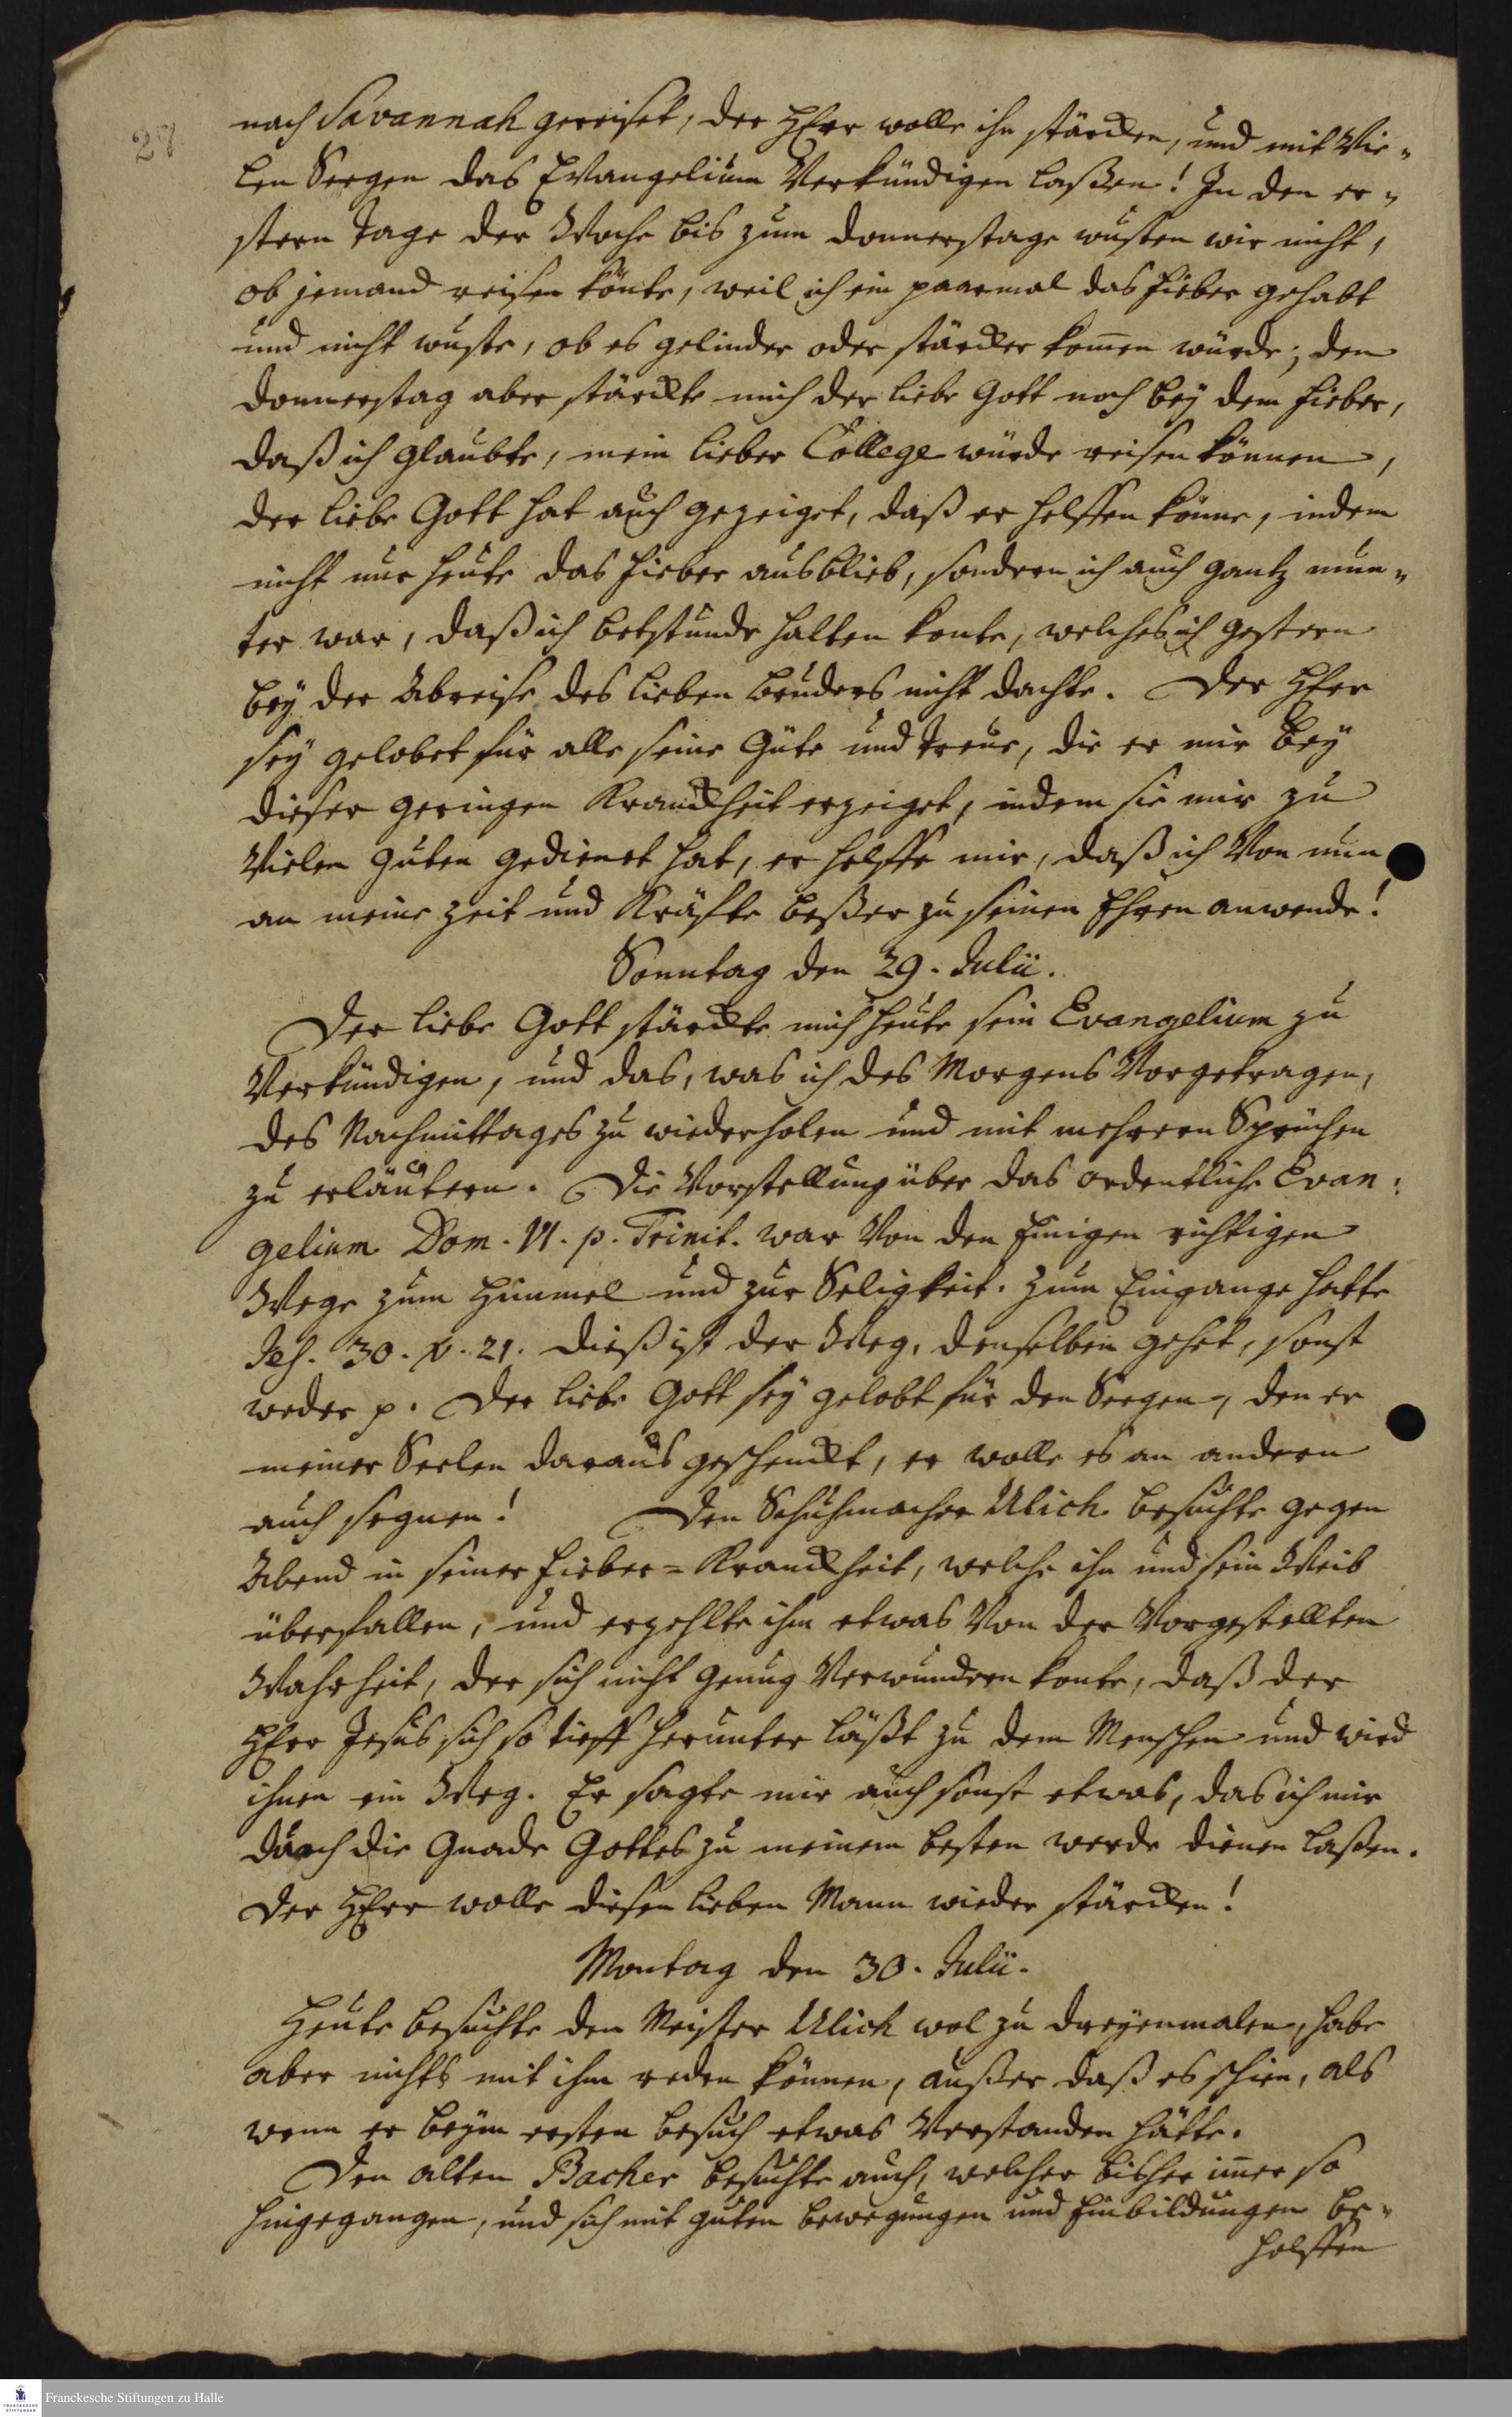 27
nach Savannah gereiset, der HErr wolle ihn stärcken, und mit Vie-
len Seegen das EVangelium Verkündigen laßen! In den er-
stern Tage der Woche bis zum Donnerstage wusten wir nicht,
ob jemand reisen könte, weil ich ein paarmal das Fieber gehabt
und nicht wuste, ob es gelinder oder stärcker kom̄en würde; den
Donnerstag aber stärckte mich der liebe Gott noch bey dem Fieber,
daß ich glaubte, mein lieber College würde reisen können,
der liebe Gott hat auch gezeiget, daß er helffen könne, indem
nicht nur heute das Fieber ausblieb, sondern ich auch gantz mun-
ter war, daß ich betstunde halten konte, welches ich gestern
bey der Abreise des lieben bruders nicht dachte. Der HErr
sey gelobet für alle seine Güte und Treue, die er mir bey
dieser geringen Kranckheit erzeiget, indem sie mir zu
Vielen guten gedienet hat, er helffe mir, daß ich Von nun
an meine Zeit und Kräffte beßer zu seinen Ehren anwende!
Sonntag den 29. Julii.
Der liebe Gott stärckte mich heute sein Evangelium zu
Verkündigen, und das, was ich des Morgens Vorgetragen,
des Nachmittages zu wiederholen und mit mehrern Sprüchen
zu erläutern. Die Vorstellung über das ordentliche Evan:
gelium Dom. VI. p. Trinit. war Von den Einigen richtigen
Wege zum Himmel und zur Seligkeit. Zum Eingange hatte
Jes. 30. v. 21. dieß ist der Weg, denselben gehet, sonst
weder p. Der liebe Gott sey gelobt für den Seegen, den er
meiner Seelen daraus geschenckt, er wolle es an andern
auch segnen! Den Schuhmacher Ulich besuchte gegen
Abend in seiner Fieber=Kranckheit, welche ihn und sein Weib
überfallen, und erzehlte ihm etwas Von der Vorgestellten
Wahrheit, der sich nicht genug Verwundern konte, daß der
HErr Jesus sich so tieff herunter läßt zu dem Menschen und wird
ihnen ein Weg. Er sagte mir auch sonst etwas, das ich mir
durch die Gnade Gottes zu meinem besten werde dienen laßen.
Der HErr wolle diesen lieben Mann wieder stärcken!
Montag den 30. Julii.
Heute besuchte den Meister Ulich wol zu dreyenmalen, habe
aber nichts mit ihm reden können, außer daß es schien, als
wenn er beym ersten besuch etwas Verstanden hätte.
Den alten Bacher besuchte auch, welcher bisher im̄er so
hingegangen, und sich mit guten bewegungen und Einbildungen be-
holffen
Franckesche Stiftungen zu Halle